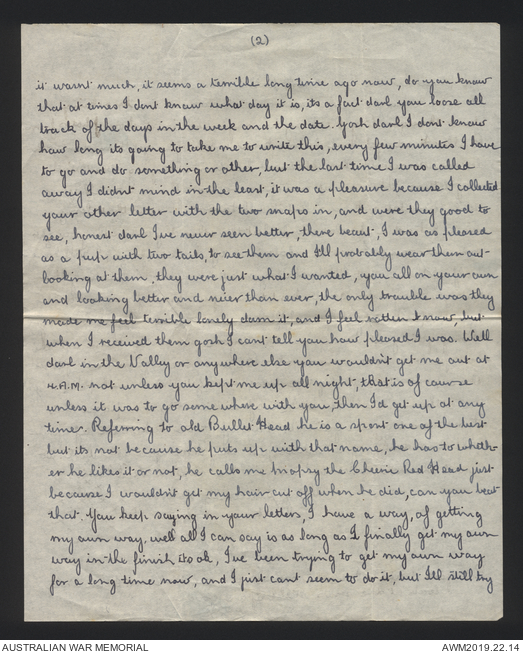 (2)
it wasnt much, it seems a terrible long time ago now, do you know
that at times I dont know what day it is, its a fact darl you loose all
track of the days in the week and the date. Gosh darl I dont know
how long its going to take me to write this, every few minutes I have
to go and do something or other, but the last time I was called
away I didnt mind in the least, it was a pleasure because I collected
your other letter with the two snaps in, and were they good to
see, honest darl I've never seen better, there beaut. I was as pleased
as a pup with two tails, to see them and I'll probably wear them out
looking at them, they were just what I wanted, you all on your own
and looking better and nicer than ever, the only trouble was they
made me feel terrible lonely darn it, and I feel rotten I know, but
when I received them gosh I cant tell you how pleased I was. Well
darl in the Valley or anywhere else you wouldn't get me out at
4.A.M. not unless you kept me up all night, that is of course
unless it was to go some where with you, then I'd get up at any
time. Referring to old Bullet Head he is a sport one of the best
but its not because he puts up with that name, he has to wheth-
er he likes it or not, he calls me the Cherrie Red Head just
because I wouldnt get my hair cut off when he did, can you beat
that. You keep saying in your letters, I have a way, of getting
my own way, well all I can say is as long as I finally get my own
way in the finish its ok, I've been trying to get my own way
for a long time now, and I just cant seem to do it, but I'll still try
AUSTRALIAN WAR MEMORIAL
AWM2019.22.14